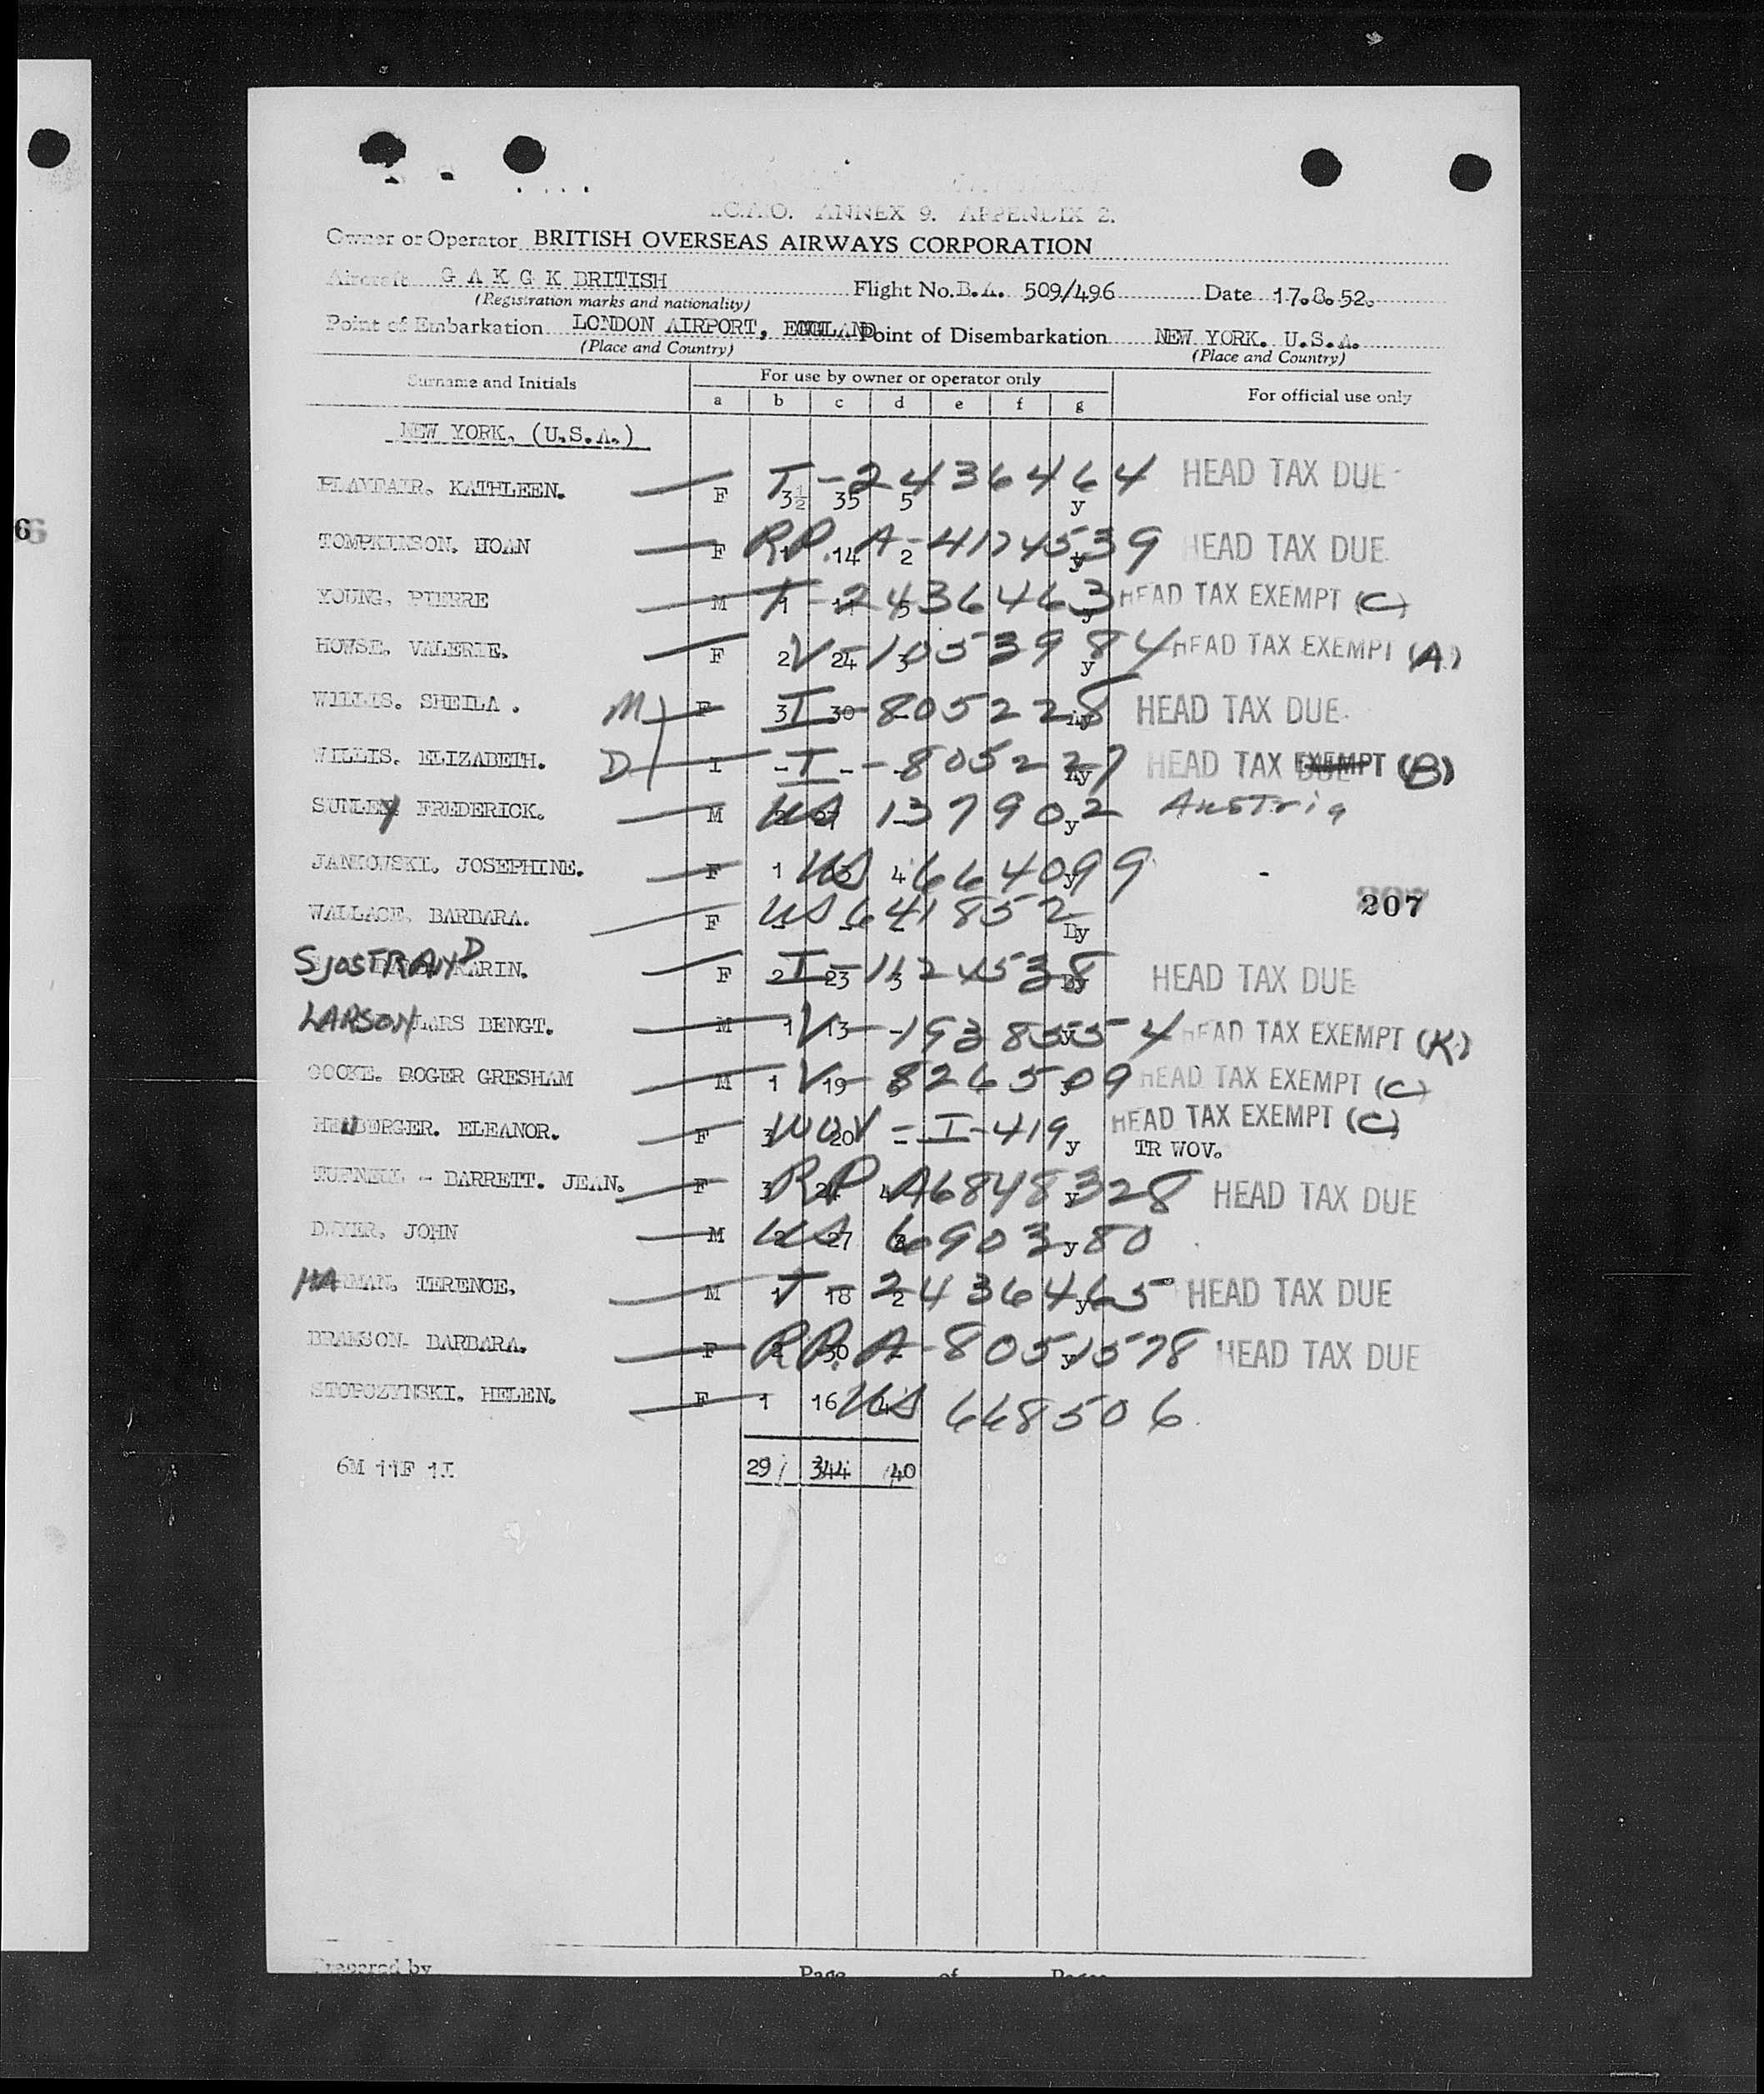 I.C.A.O. ANNEX 9. APPENDIX 2.
Owner or Operator BRITISH OVERSEAS AIRWAYS CORPORATION
Aircraft G A K G K BRITISH Flight No. B.A. 509/496 Date 17.8.52.
(Registration marks and nationality)
Point of Embarkation LONDON AIRPORT, ENGLAND Point of Disembarkation NEW YORK. U.S.A.
(Place and Country) (Place and Country)
Surname and Initials For use by owner or operator only For official use only
a b c d e f g
NEW YORK. (U.S.A.)
PLAYFAIR. KATHLEEN. F 3½ 35 5 y T-2436464 HEAD TAX DUE
TOMPKINSON. HOAN F 1 14 2 y RP. A-4174539 HEAD TAX DUE
6
YOUNG. PIERRE M 1 5 y T-2436463 HEAD TAX EXEMPT (C)
HOWSE. VALERIE. F 2 24 3 y V-1053984 HEAD TAX EXEMPT (A)
WILLIS. SHEILA. M F 3 30 - I-805228 HEAD TAX DUE
WILLIS. ELIZABETH. D I - - - I-805227 HEAD TAX EXEMPT (B)
SUNLEY FREDERICK. M 2 27 - y US 137902 Austria
JANKOWSKI. JOSEPHINE. F 1 13 4 y US 664099
207
WALLACE. BARBARA. F - - - Dy US 641852
SJOSTRAND KARIN. F 2 23 3 I-1124538 HEAD TAX DUE
LARSON LARS BENGT. M 1 13 - y V-1938554 HEAD TAX EXEMPT (K)
COOKE. ROGER GRESHAM M 1 19 V-826509 HEAD TAX EXEMPT (C)
ELEANOR. F 3 20 - y WOV-I-419 HEAD TAX EXEMPT (C)
TR WOV.
- BARRETT. JEAN. F 3 4 y RP A6848328 HEAD TAX DUE
DWYER, JOHN M 2 27 3 y US 690380
HARMAN. TERENCE. M 1 18 2 y T-2436465 HEAD TAX DUE
BRAMSON. BARBARA. F 2 30 - y RP. A-8051578 HEAD TAX DUE
STOPCZYNSKI. HELEN. F 1 16 4 US 668506
6M 11F 1I 29 344 40
Prepared by Page of Pages